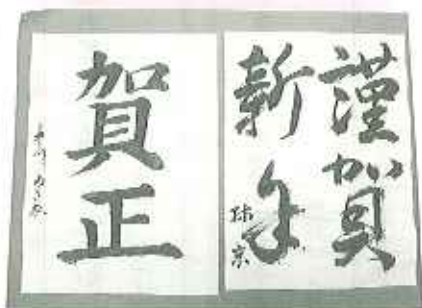 謹賀
新年
賀正